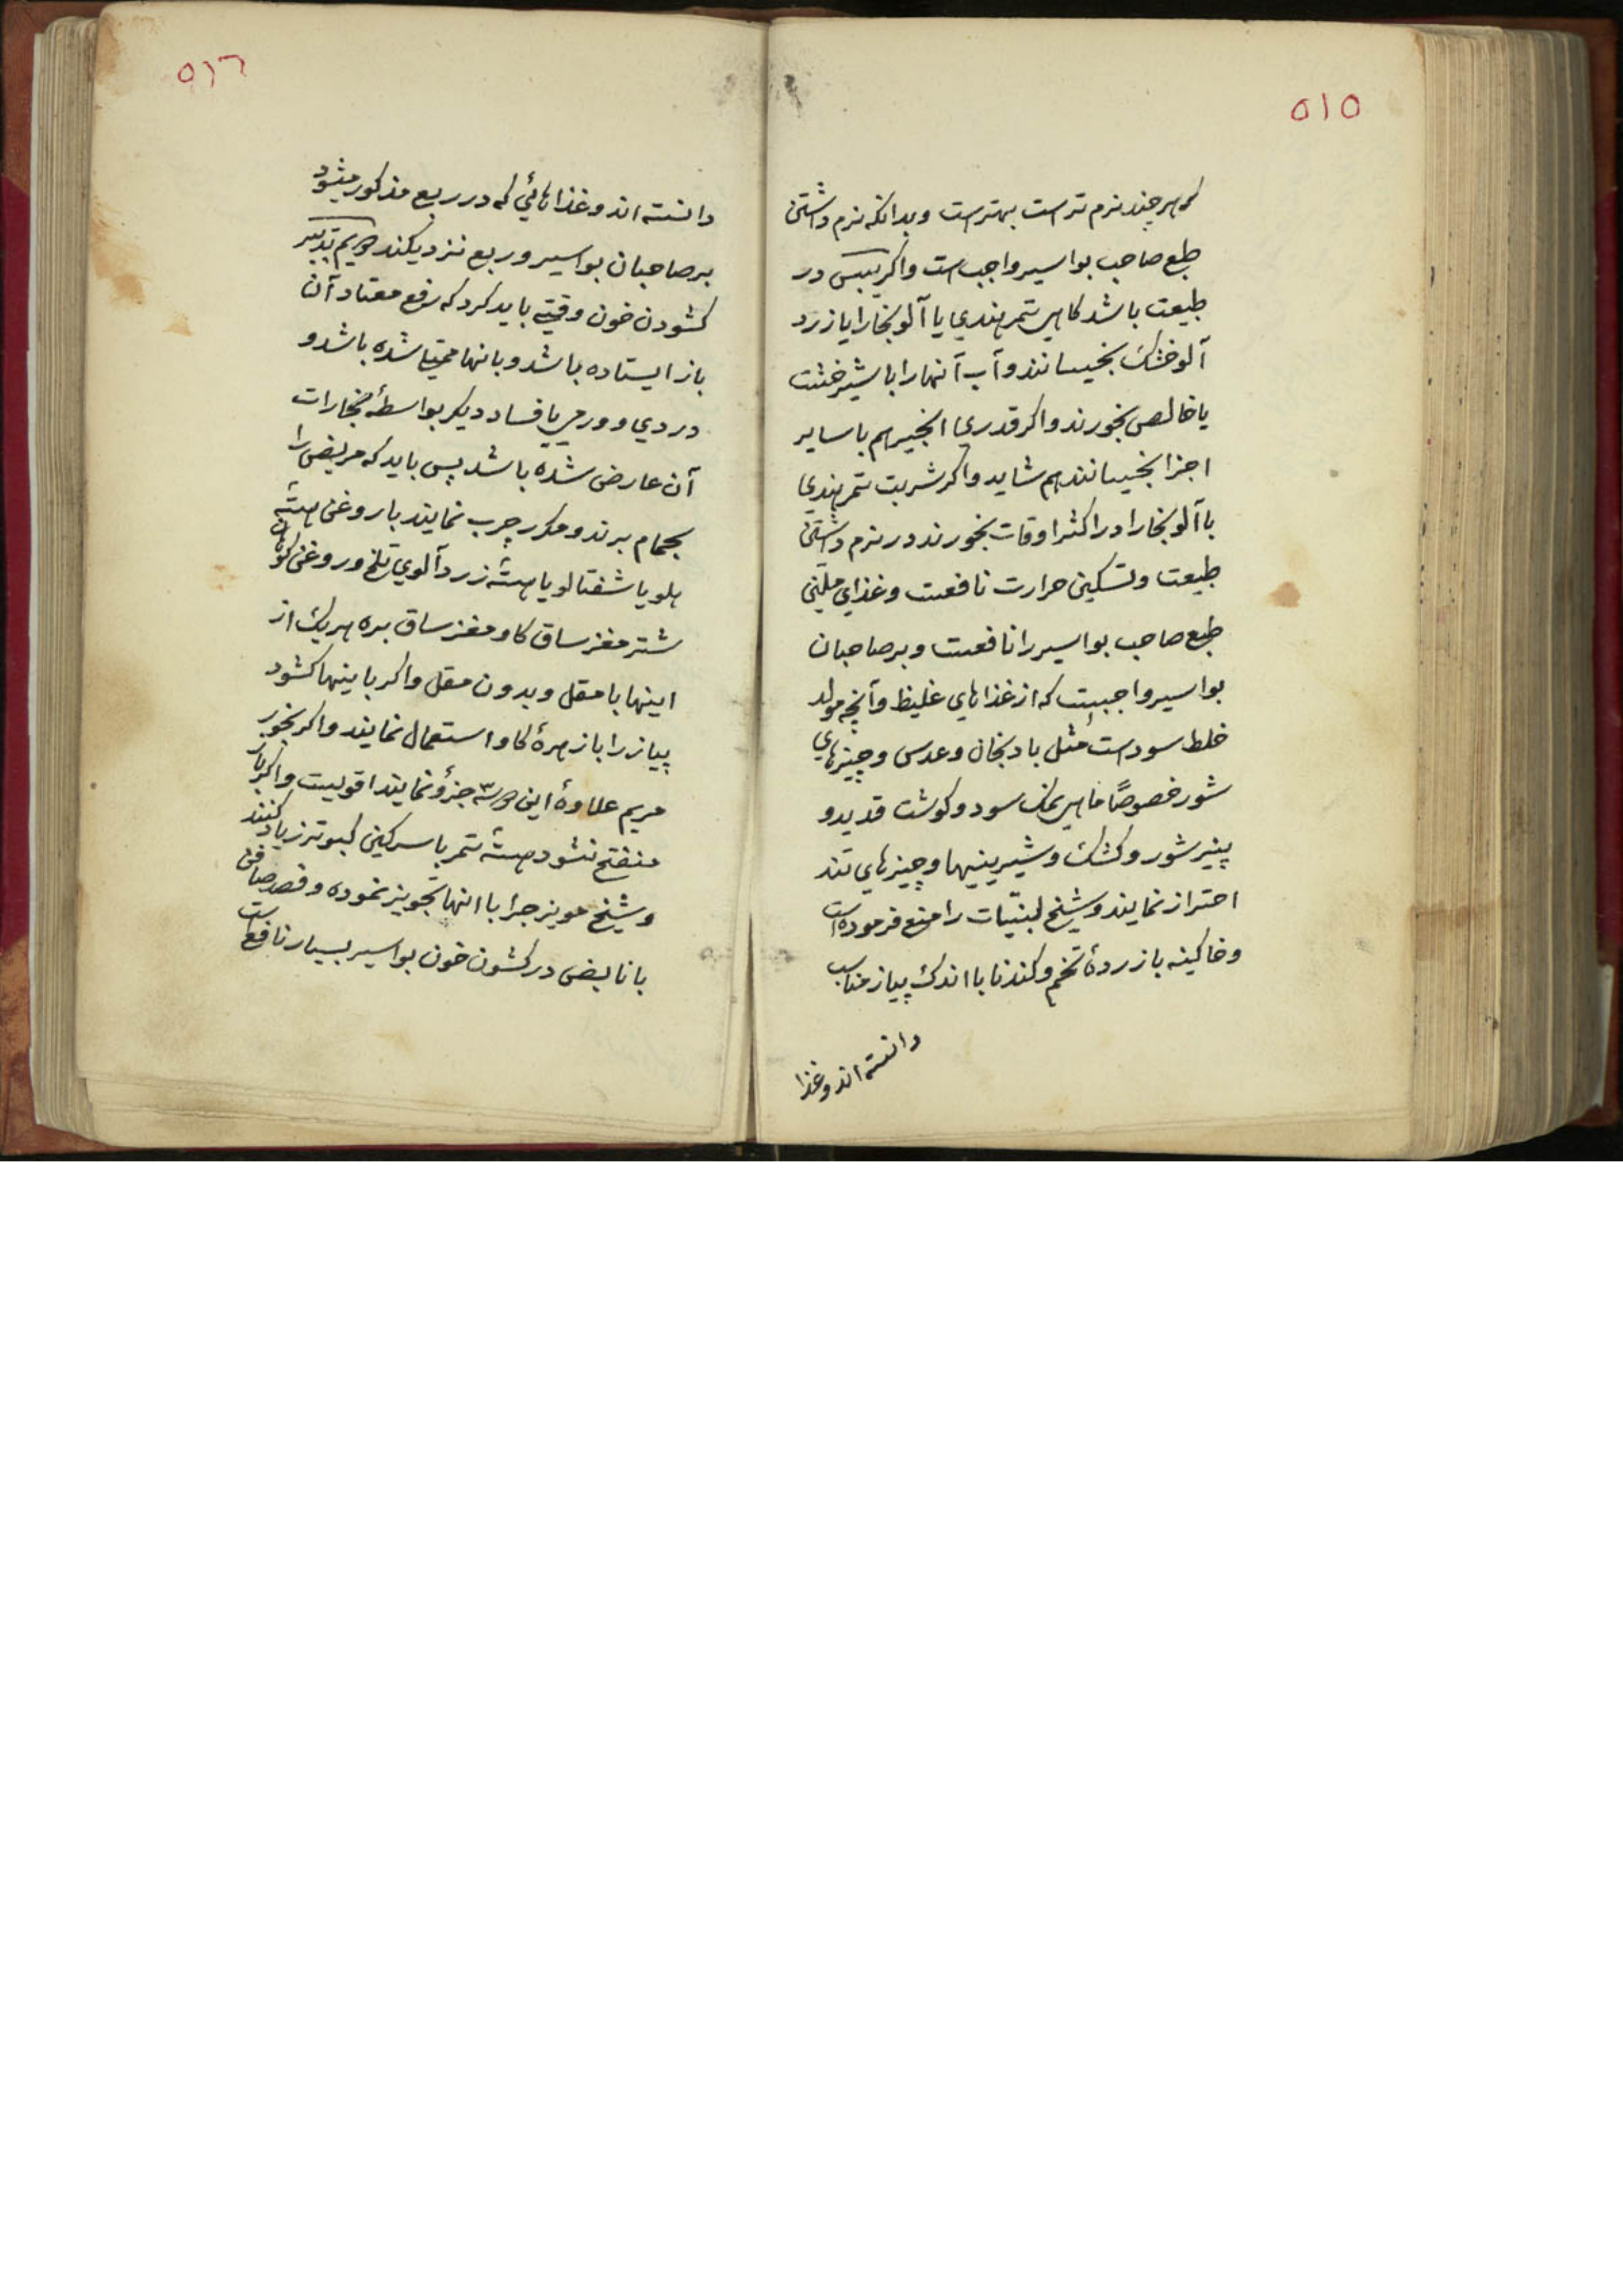 ٥١٥
که هرچند نرم ترست بهترست وبدانکه نرم داشتن
طبع صاحب بواسیر واجبست واکر یبسی در
طبیعت باشد کاهی تمر هندی یا آلو بخارا یا زرد
آلو خشک بخیسانند وآب آنها را با شیرخشت
یا خالص بخورند واکر قدری انجیر هم با سایر
اجزا بخیسانند هم شاید واکر شربت تمر هندی
با آلو بخارا در اکثر اوقات بخورند در نرم داشتن
طبیعت وتسکین حرارت نافعست وغذای ملین
طبع صاحب بواسیر را نافعست وبر صاحبان
بواسیر واجبست که از غذاهای غلیظ وآنچه مولد
خلط سوداست مثل بادنجان وعدس وچیزهای
شور خصوصًا ماهی نمک سود وکوشت قدید و
پنیر شور وکشک وشیرینیها وچیزهای تند
احتراز نمایند وشیخ لبنیّات را منع فرموده است
وخاکینه با زردهٔ تخم وکندنا با اندک پیاز مناسب
دانسته اند وغذا
٥١٦
دانسته اند وغذاهائی که در ریع مذکور میشود
بر صاحبان بواسیر وریع نزدیکند تدبیر
کشودن خون وقتی باید کرد که رفع معتاد آن
باز ایستاده باشد وبانها شده باشد و
دردی وورمی یا فساد دیکر بواسطهٔ بخارات
آن عارض شده باشد پس باید که مریض را
بحمام برند ومکرر چرب نمایند با روغن هستهٔ
هلو یا شفتالو یا هستهٔ زرد آلوی تلخ وروغن کوهان
شتر مغز ساق کاو مغز ساق بره هریک از
اینها با مقل وبدون مقل واکر باینها کشود
پیاز را با زهرهٔ کاو استعمال نمایند واکر بخور
مریم علاوهٔ این جزؤ نمایند اقویست واکر باز
منفتح نشود هستهٔ تمر با سرکین کبوتر زیاد کنند
وشیخ مویز جرا با انها تجویز نموده وفصد صافن
با نابض در کشون خون بواسیر بسیار نافع است